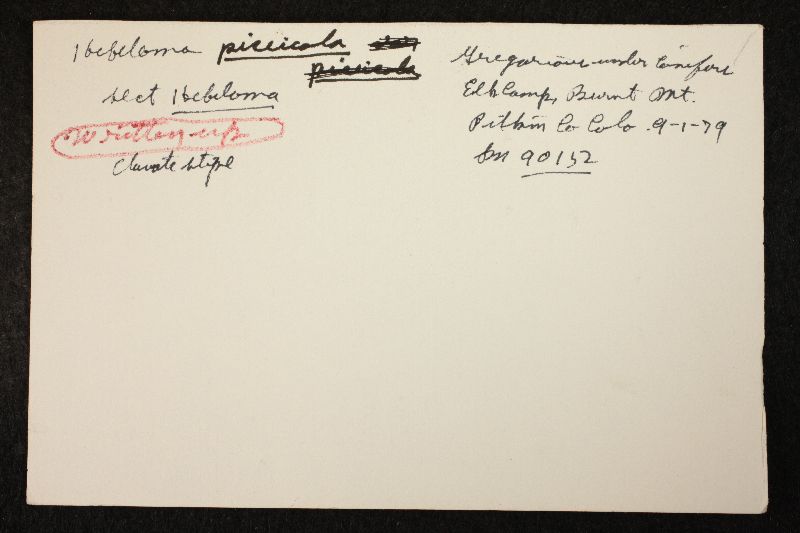 Hebeloma piceicola
piceicola
sect Hebeloma
Written up
Clavate stipe
Gregarious under conifers
Elk Camp, Burnt Mt.
Pitkin Co Colo. 9-1-79
Sm 90152